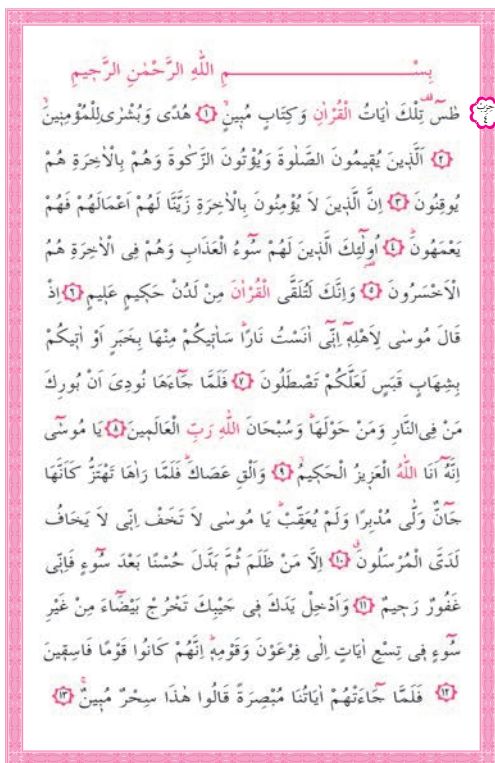 بِسْمِ اللّٰهِ الرَّحْمٰنِ الرَّحٖيمِ
طٰسٓ تِلْكَ اٰيَاتُ الْقُرْاٰنِ وَكِتَابٍ مُبٖينٍۙ ﴿١﴾ هُدًى وَبُشْرٰى لِلْمُؤْمِنٖينَۙ
﴿٢﴾ اَلَّذٖينَ يُقٖيمُونَ الصَّلٰوةَ وَيُؤْتُونَ الزَّكٰوةَ وَهُمْ بِالْاٰخِرَةِ هُمْ
يُوقِنُونَ ﴿٣﴾ اِنَّ الَّذٖينَ لَا يُؤْمِنُونَ بِالْاٰخِرَةِ زَيَّنَّا لَهُمْ اَعْمَالَهُمْ فَهُمْ
يَعْمَهُونَۜ ﴿٤﴾ اُولٰٓئِكَ الَّذٖينَ لَهُمْ سُٓوءُ الْعَذَابِ وَهُمْ فِى الْاٰخِرَةِ هُمُ
الْاَخْسَرُونَ ﴿٥﴾ وَاِنَّكَ لَتُلَقَّى الْقُرْاٰنَ مِنْ لَدُنْ حَكٖيمٍ عَلٖيمٍ ﴿٦﴾ اِذْ
قَالَ مُوسٰى لِاَهْلِهٖٓ اِنّٖٓى اٰنَسْتُ نَارًاۜ سَاٰتٖيكُمْ مِنْهَا بِخَبَرٍ اَوْ اٰتٖيكُمْ
بِشِهَابٍ قَبَسٍ لَعَلَّكُمْ تَصْطَلُونَ ﴿٧﴾ فَلَمَّا جَٓاءَهَا نُودِىَ اَنْ بُورِكَ
مَنْ فِى النَّارِ وَمَنْ حَوْلَهَاۜ وَسُبْحَانَ اللّٰهِ رَبِّ الْعَالَمٖينَ ﴿٨﴾ يَا مُوسٰٓى
اِنَّهُٓ اَنَا اللّٰهُ الْعَزٖيزُ الْحَكٖيمُۙ ﴿٩﴾ وَاَلْقِ عَصَاكَۜ فَلَمَّا رَاٰهَا تَهْتَزُّ كَاَنَّهَا
جَٓانٌّ وَلّٰى مُدْبِرًا وَلَمْ يُعَقِّبْۜ يَا مُوسٰى لَا تَخَفْ اِنّٖى لَا يَخَافُ
لَدَىَّ الْمُرْسَلُونَۗ ﴿١٠﴾ اِلَّا مَنْ ظَلَمَ ثُمَّ بَدَّلَ حُسْنًا بَعْدَ سُٓوءٍ فَاِنّٖى
غَفُورٌ رَحٖيمٌ ﴿١١﴾ وَاَدْخِلْ يَدَكَ فٖى جَيْبِكَ تَخْرُجْ بَيْضَٓاءَ مِنْ غَيْرِ
سُٓوءٍ فٖى تِسْعِ اٰيَاتٍ اِلٰى فِرْعَوْنَ وَقَوْمِهٖۜ اِنَّهُمْ كَانُوا قَوْمًا فَاسِقٖينَ
﴿١٢﴾ فَلَمَّا جَٓاءَتْهُمْ اٰيَاتُنَا مُبْصِرَةً قَالُوا هٰذَا سِحْرٌ مُبٖينٌۚ ﴿١٣﴾
حزب
٤